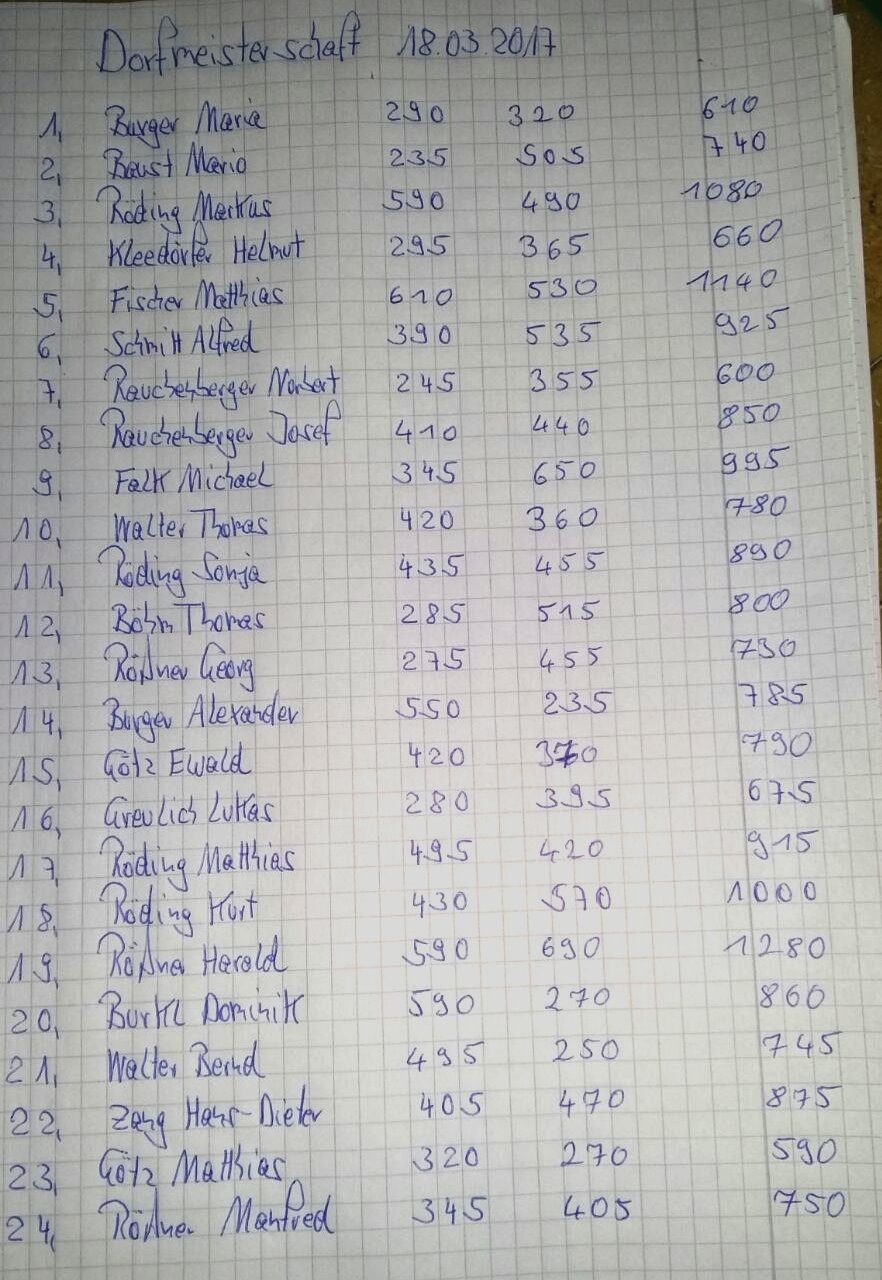 Dorfmeisterschaft 18.03.2017
1, Burger Maria 290 320 610
2, Baust Mario 235 505 740
3, Röding Markus 590 490 1080
4, Kleedörfer Helmut 295 365 660
5, Fischer Matthias 610 530 1140
6, Schmitt Alfred 390 535 925
7, Rauchenberger Norbert 245 355 600
8, Rauchenberger Josef 410 440 850
9, Falk Michael 345 650 995
10, Walter Thomas 420 360 780
11, Röding Sonja 435 455 890
12, Böhm Thomas 285 515 800
13, Rößner Georg 275 455 730
14, Burger Alexander 550 235 785
15, Götz Ewald 420 370 790
16, Greulich Lukas 280 395 675
17, Röding Matthias 495 420 915
18, Röding Kurt 430 570 1000
19, Rößner Harald 590 690 1280
20, Burkl Dominik 590 270 860
21, Walter Bernd 495 250 745
22, Zang Hans-Dieter 405 470 875
23, Götz Matthias 320 270 590
24, Rößner Manfred 345 405 750